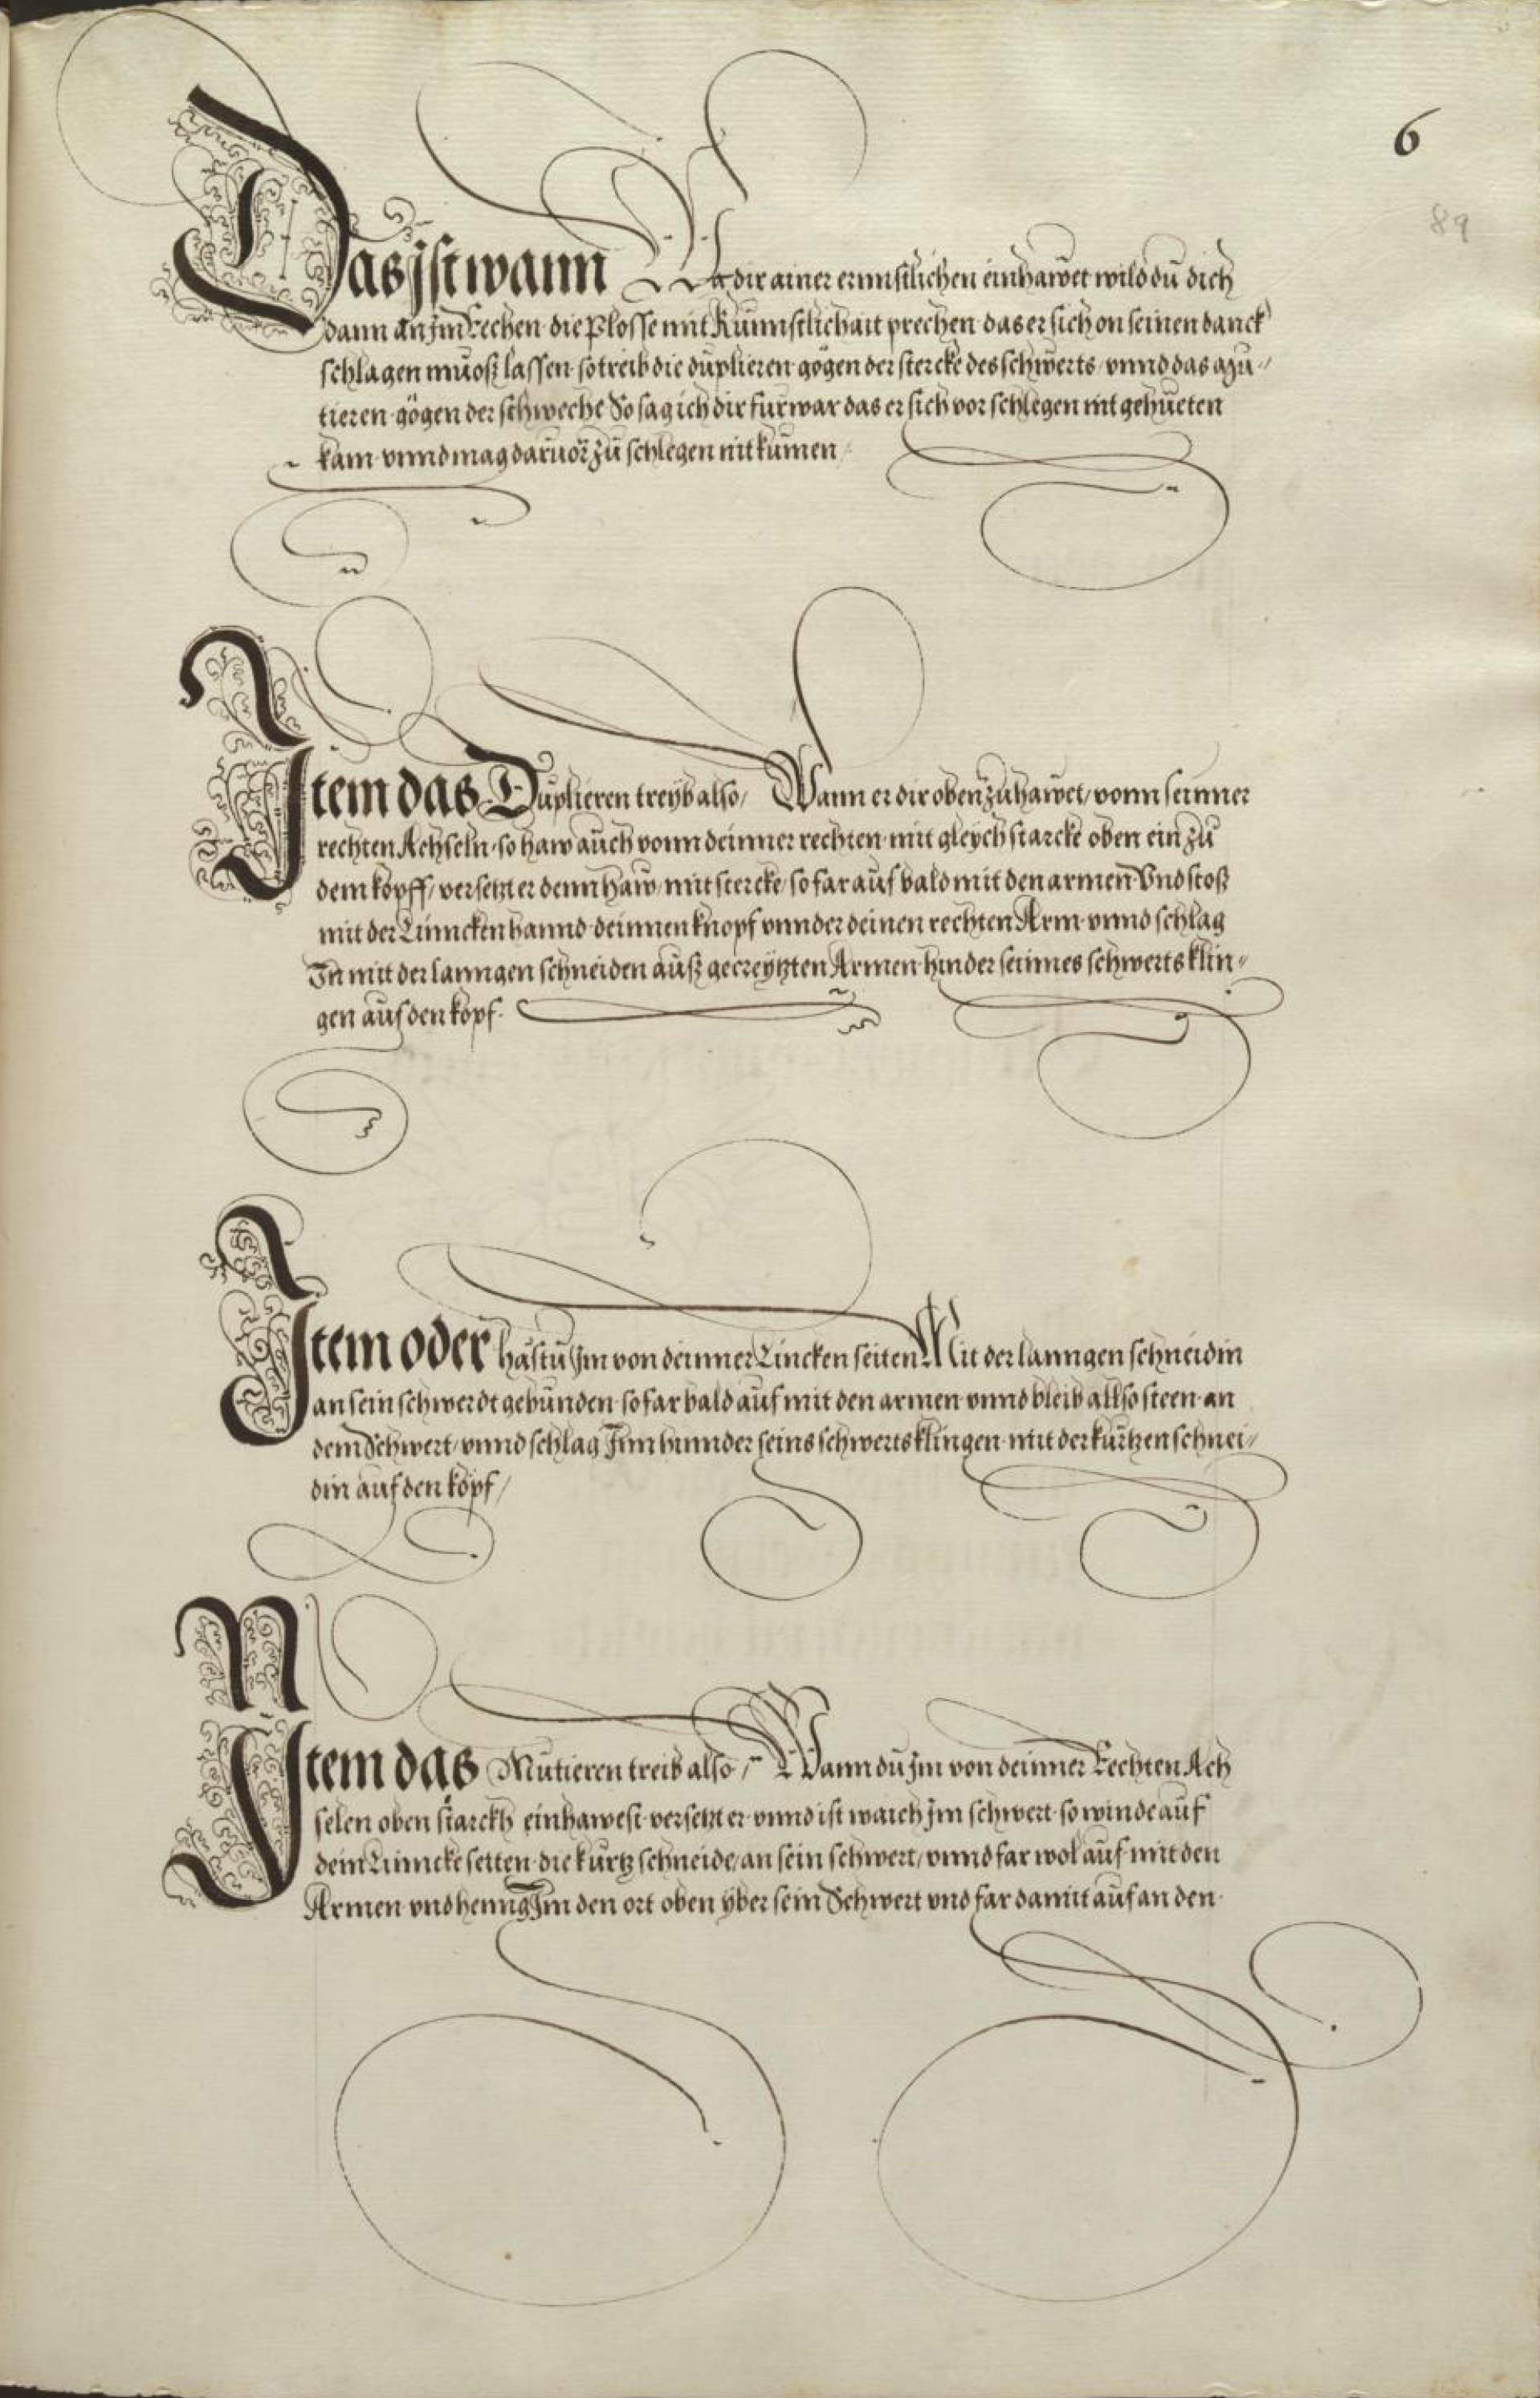 6
89
Das ÿst wann Wa dir ainer ernnstlichen einhawet wild du dich
dann an Jm Rechen die Plosse mit Kunnstlichait prechen das er sich on seinen danck
schlagen muoß lassen so treib die duplieren gögen der stercke des schwerts vnnd das
tieren gögen der schweche So sag ich dir furwar das er sich vor schlegen nit gehueten
kam vnnd mag daruor zu schlegen nit kumen
Jtem das Duplieren treÿb also / Wann er dir oben zuhawet / vonn seinner
rechten Achseln so haw auch vonn deinner rechten mit gleych starcke oben ein zu
dem kopff / versetzt er denn haw mit stercke so far auf bald mit den armen Vnd stoß
mit der Linncken hannd deinnen knopf vnnder deinen rechten Arm vnnd schlag
Jn mit der lanngen schneiden auß gecreÿtzten Armen hinder seinnes schwerts klin⸗
gen auf den kopf.
Jtem oder hastu Jm von deinner Lincken seiten Mit der lanngen schneidin
an sein schwerdt gebunden so far bald auf mit den armen vnnd bleib allso steen an
dem Schwert vnnd schlag Jnn hinnder seins schwerts klingen mit der kurtzen schnei⸗
din auf den kopf /
Jtem das Mutieren treib also / Wann du Jm von deinner Rechten Ach
selen oben starckh einhawest versetzt er vnnd ist waich Jm schwert so winde auf
dein Linncke seitten die kurtz schneide / an sein schwert / vnnd far wol auf mit den
Armen vnd henng Jm den ort oben ÿber sein Schwert vnd far damit auf an den